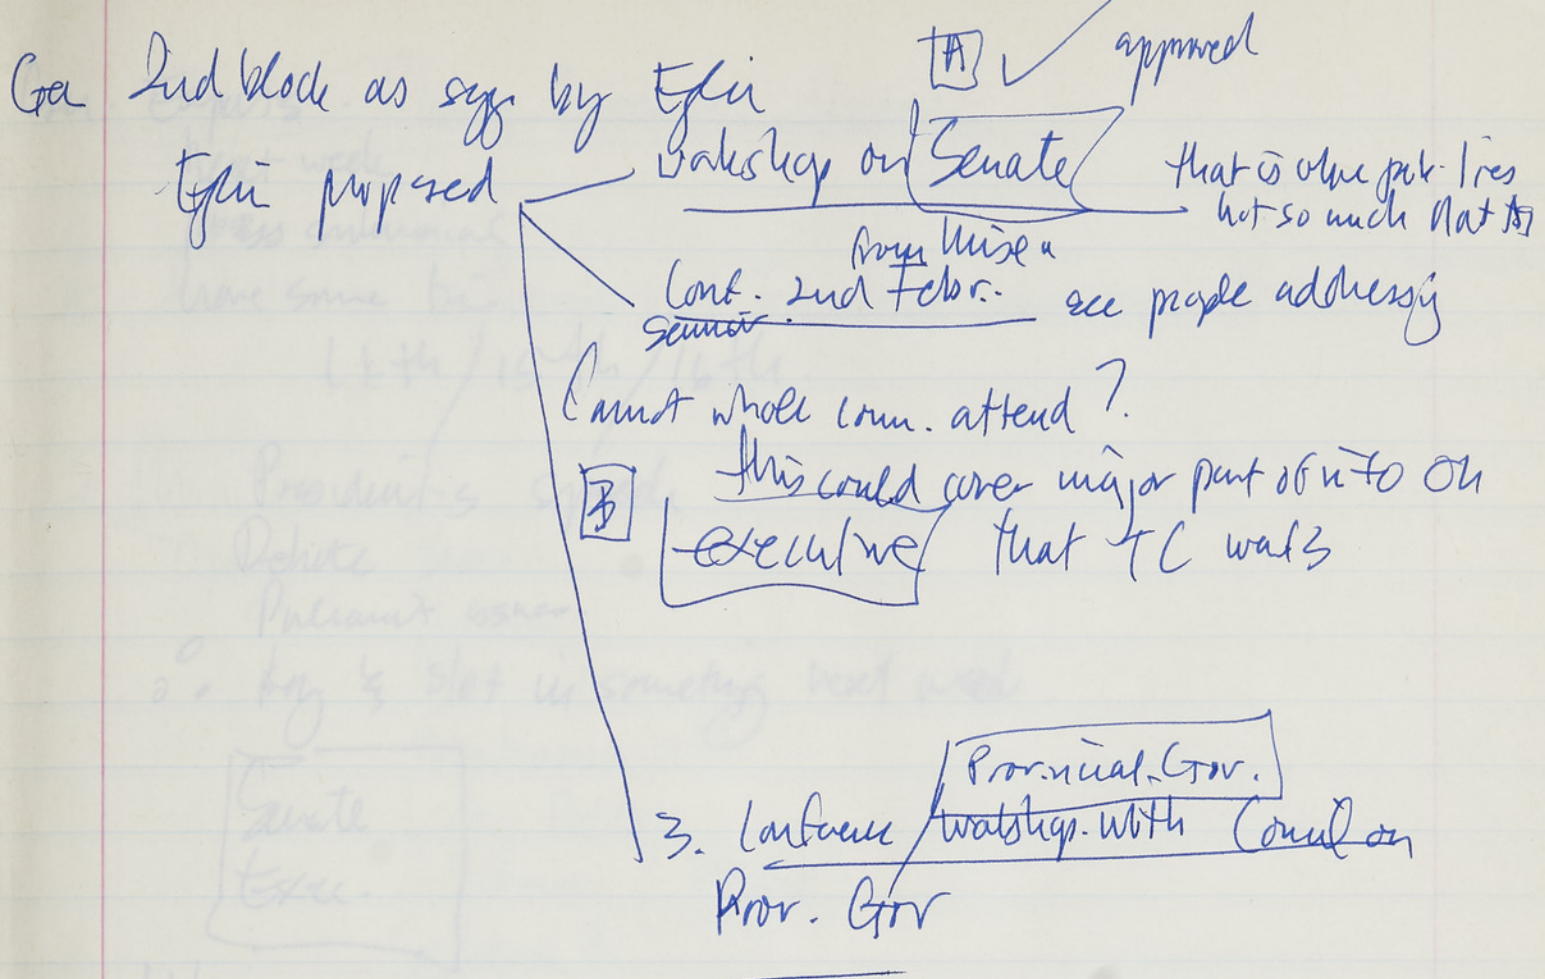 [A] ✓ approved
2nd block as sgg. by Efiu
Efiu proposed
workshop on Senate
that is where prob. lies
not so much Nat A
from
Conf. 2nd Febr.. see people addressing
seminar
Cannot whole comm. attend?
[B] this could cover major part of info on
executive that TC wants
Provincial. Gov.
3. Conference / workshop. with Comm on
Prov. Gov